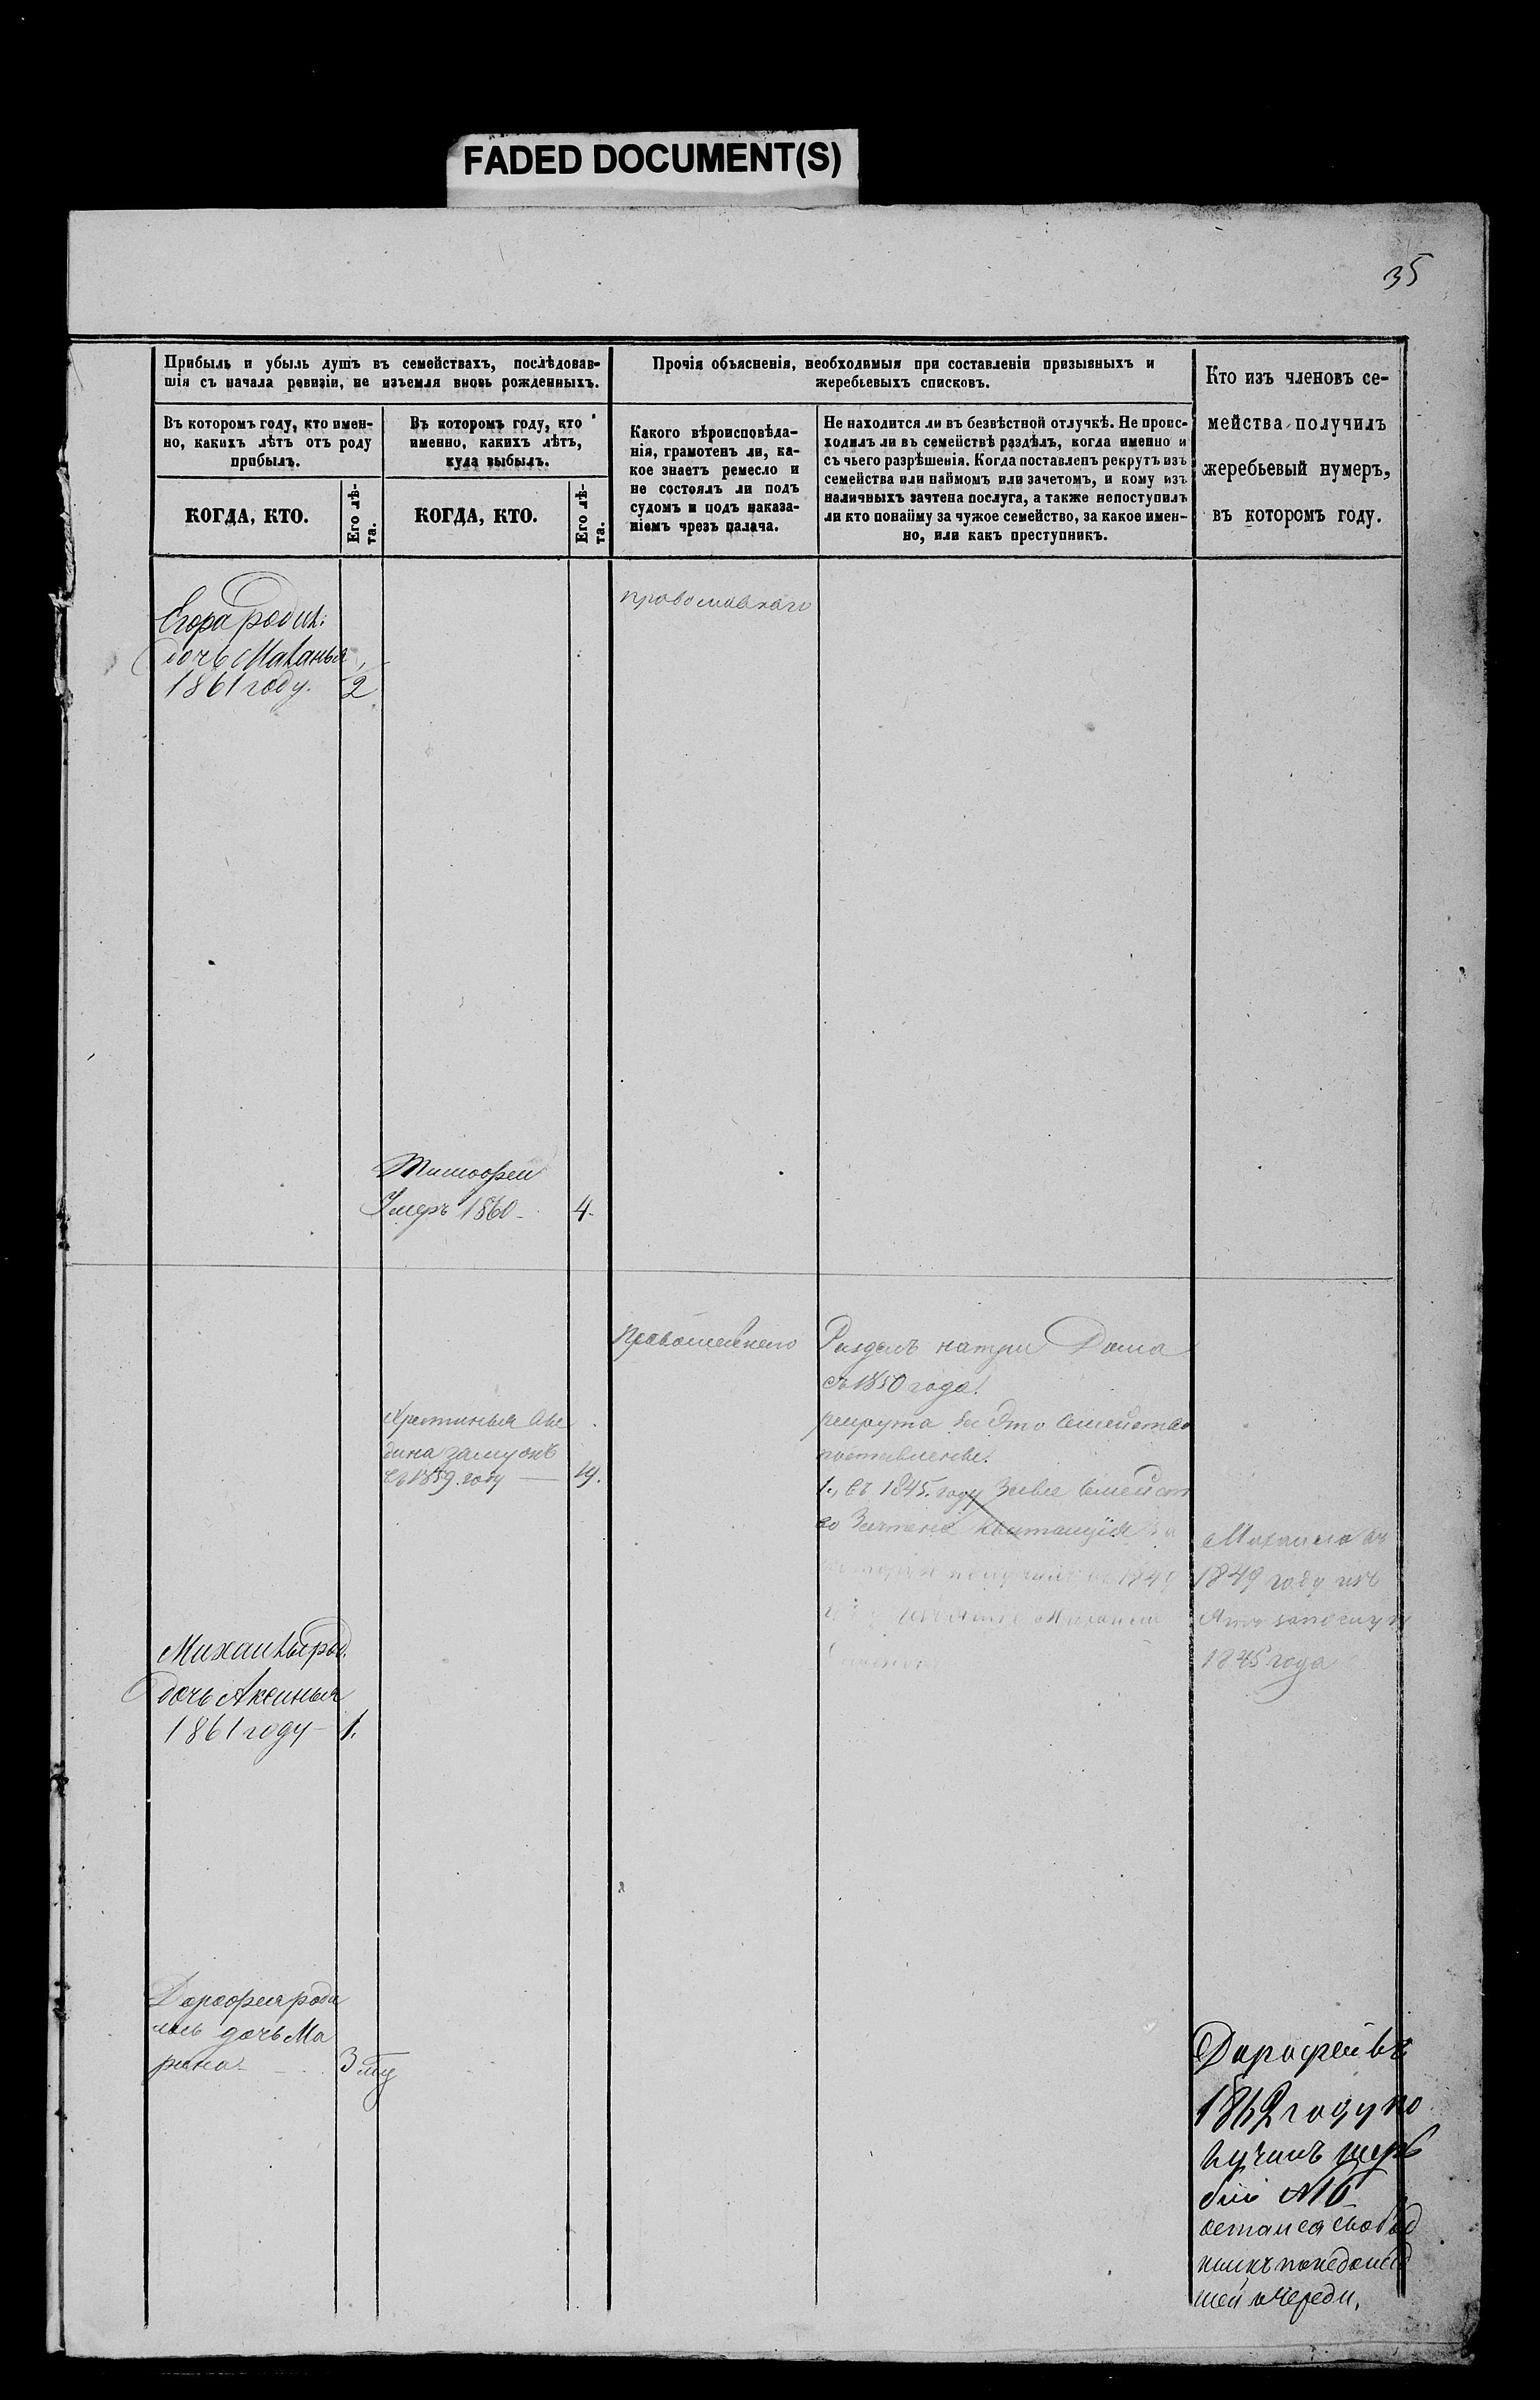 FADED DOCUMENT(S)
35
Прибыль и убыль душъ въ семействахъ, послѣдовав-
шія съ начала ревизіи, не изъемля вновь рожденныхъ.
Прочія объясненія, необходимыя при составленіи призывныхъ и
жеребьевыхъ списковъ.
Кто изъ членовъ се-
мейства получилъ
жеребьевый нумеръ,
въ которомъ году.
Въ которомъ году, кто имен-
но, какихъ лѣтъ отъ роду
прибылъ.
Въ которомъ году, кто
именно, какихъ лѣтъ,
куда выбылъ.
Какого вѣроисповѣда-
нія, грамотенъ ли, ка-
кое знаетъ ремесло и
не состоялъ ли подъ
судомъ и подъ наказа-
ніемъ чрезъ палача.
Не находится ли въ безвѣстной отлучкѣ. Не проис-
ходилъ ли въ семействѣ раздѣлъ, когда именно и
съ чьего разрѣшенія. Когда поставленъ рекрутъ изъ
семейства или наймомъ или зачетомъ, и кому изъ
наличныхъ зачтена послуга, а также непоступилъ
ли кто понайму за чужое семейство, за какое имен-
но, или какъ преступникъ.
КОГДА, КТО.
Его лѣ-
та.
КОГДА, КТО.
Его лѣ-
та.
Егора родил:
дочь Маланья
1861 году. 2
православнаго
Тимофеи
Умеръ 1860 - 4.
православнаго
Раздѣлъ натри Дома
съ 1850 года.
рекрута
1., Въ 1845. году
квитанція
замужъ
въ 1859. году — 19.
Михаила въ
1849 году
1845 года
Михаилы род.
дочь Аксинья
1861 году - 1.
Дорофея роди
лась дочь Ма
рина - 3
Дорофей въ
1862 году по
лучилъ жере
бій №16
остался свобод
нымъ понедошед
шей очереди.